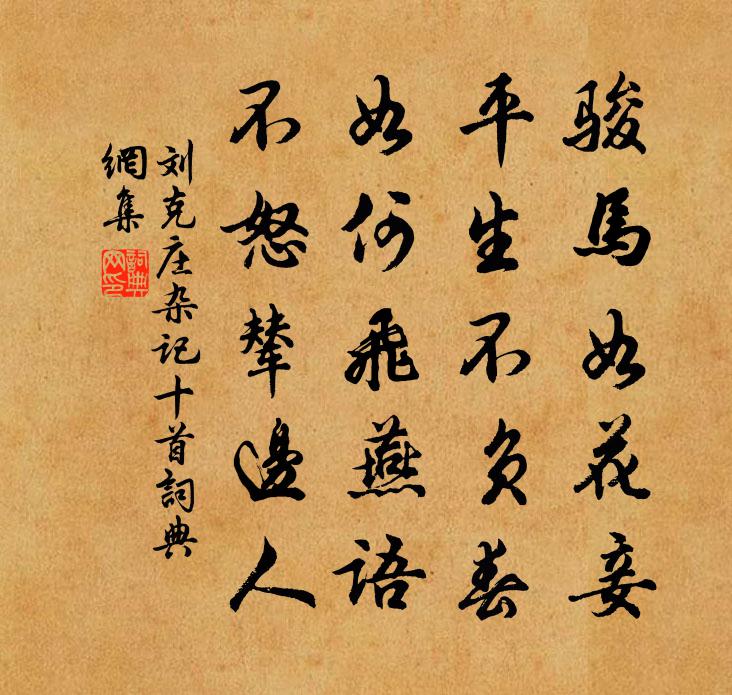 骏馬如花妾
平生不负春
如何飛燕語
不怒辇邊人
刘克庄杂记十首詞典
網集
詞典
网印